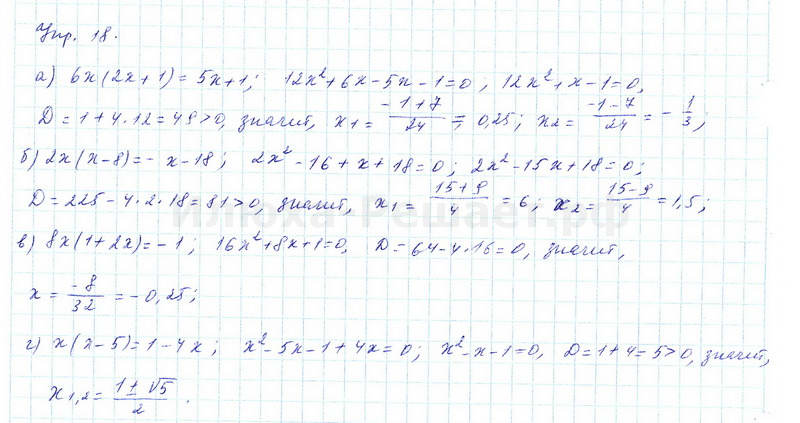 Упр. 18.
а) 6x(2x+1)=5x+1; 12x²+6x-5x-1=0, 12x²+x-1=0,
D=1+4·12=49>0, значит, x₁=(-1+7)/24=0,25; x₂=(-1-7)/24=-1/3;
б) 2x(x-8)=-x-18; 2x²-16+x+18=0; 2x²-15x+18=0;
D=225-4·2·18=81>0, значит, x₁=(15+9)/4=6; x₂=(15-9)/4=1,5;
илюха-решает.рф
в) 8x(1+2x)=-1; 16x²+8x+1=0, D=64-4·16=0, значит,
x=-8/32=-0,25;
г) x(x-5)=1-4x; x²-5x-1+4x=0; x²-x-1=0, D=1+4=5>0, значит,
x₁,₂=(1±√5)/2.